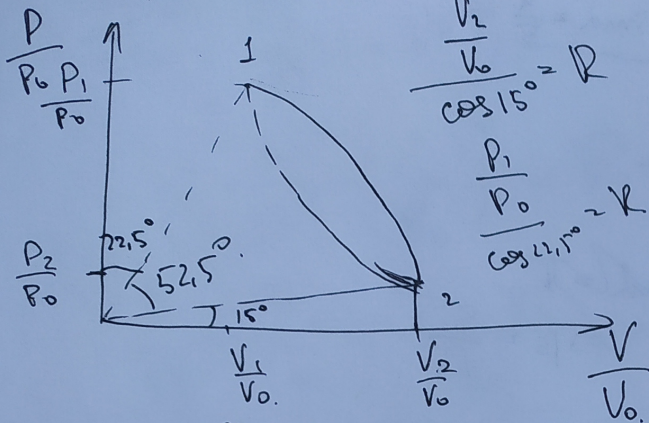 P/P₀
P₁/P₀
1
V₂/V₀/cos15° = R
P₁/P₀/cos22,5° = R
22,5°
P₂/P₀
52,5°.
15°
2
V₁/V₀.
V.₂/V₀
V/V₀.